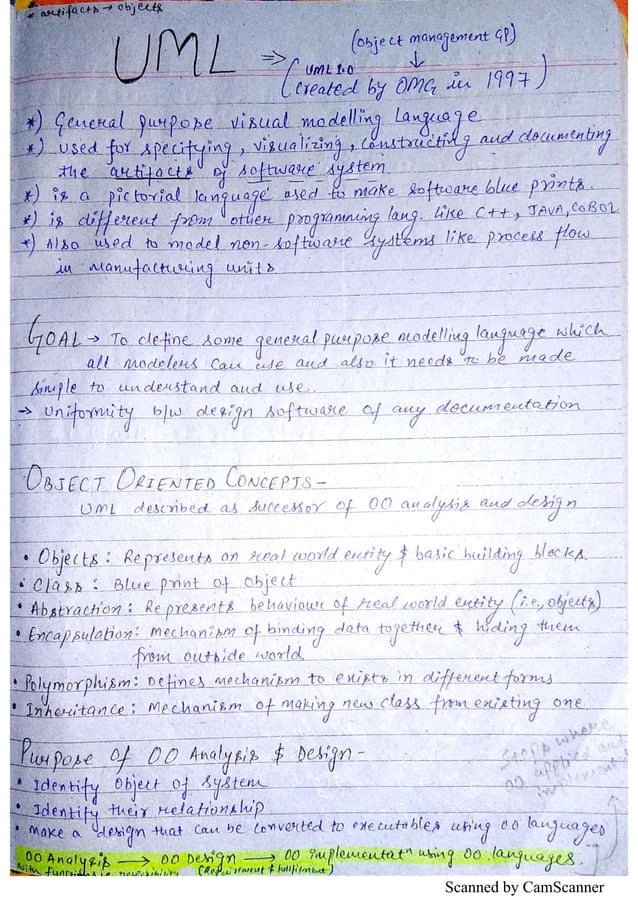 * artifacts → objects
(object management GP)
UML ⇒ ( UML 1.0
created by OMG in 1997 )
*) General purpose visual modelling Language
*) used for specifying, visualizing, constructing and documenting
the artifacts of software system.
*) is a pictorial language used to make software blue prints.
*) is different from other programming lang. like C++, JAVA, COBOL
*) Also used to model non-software systems like process flow
in manufacturing units
GOAL → To define some general purpose modelling language which
all modelers can use and also it needs to be made
simple to understand and use..
→ Uniformity b/w design software of any documentation
OBJECT ORIENTED CONCEPTS -
UML described as successor of OO analysis and design
• Objects: Represents an real world entity & basic building blocks
• Class: Blue print of object
• Abstraction: Represents behaviour of real world entity (i.e., objects)
• Encapsulation: Mechanism of binding data together & hiding them
from outside world
• Polymorphism: Defines mechanism to exists in different forms
• Inheritance: Mechanism of making new class from existing one.
Purpose of OO Analysis & Design -
Steps where
OO applied and
implement
• Identify Object of system
• Identify their relationship
• make a design that can be converted to executables using OO languages
OO Analysis → OO Design → OO Implementatⁿ using OO languages.
(Requirement & fulfilment)
Scanned by CamScanner